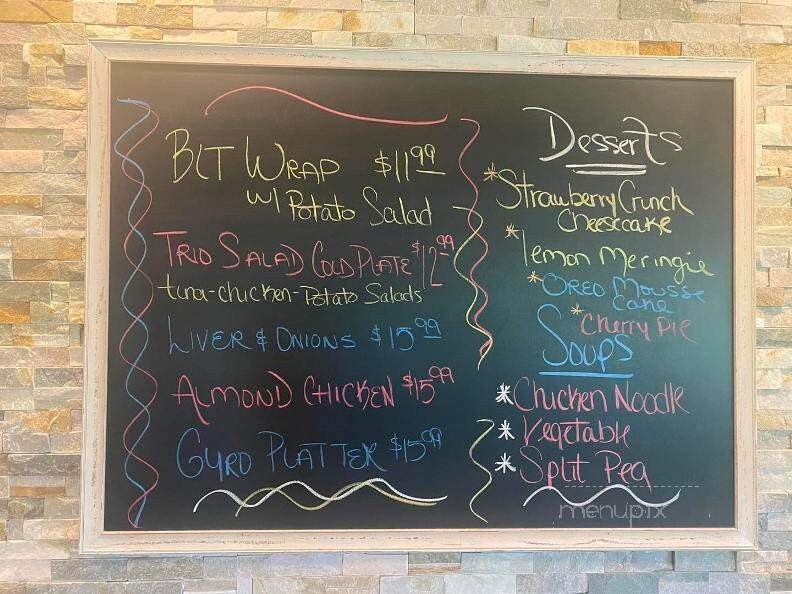 BLT WRAP $11.99
w/ Potato Salad
TRIO SALAD COLD PLATE $12.99
tuna-chicken-Potato Salads
LIVER & ONIONS $15.99
ALMOND CHICKEN $15.99
GYRO PLATTER $15.99
Desserts
*Strawberry Crunch
Cheesecake
*lemon Meringie
*OREO MOUSSE
CAKE
*Cherry PIE
Soups
*Chicken Noodle
*Vegetable
*Split Pea
menupix